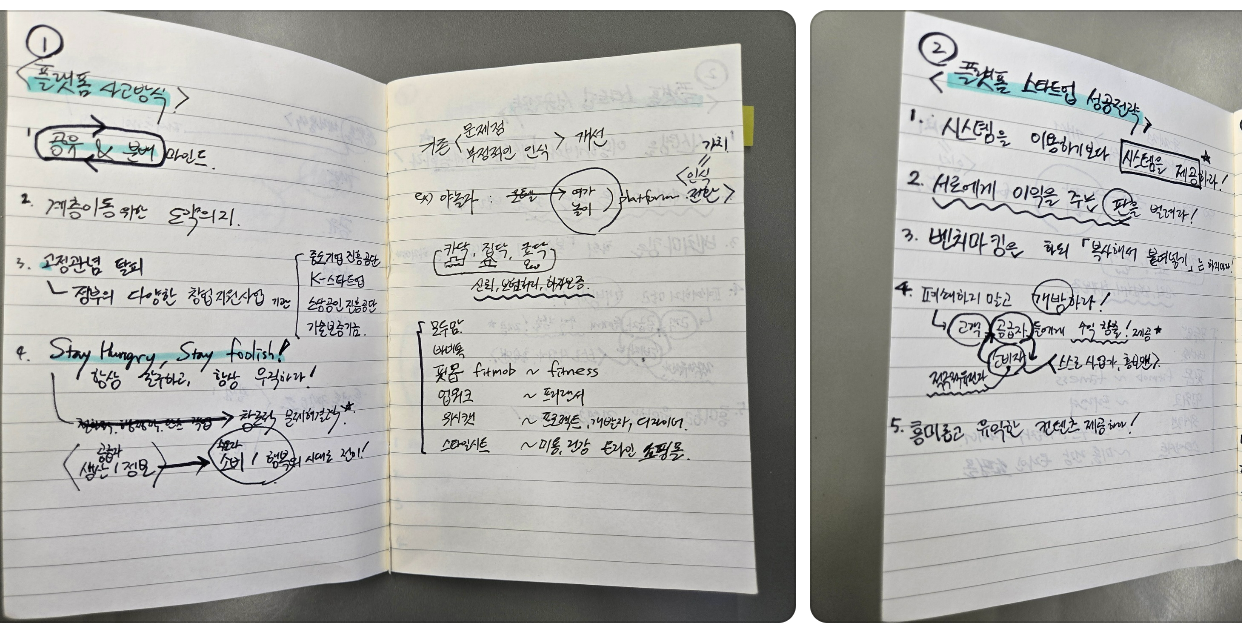 ①
<플랫폼 사고방식>
1. 공유 & 분배 마인드.
2. 계층이동 위한 도약의지.
3. 고정관념 탈피
정부의 다양한 창업지원사업 기관
중소기업진흥공단
K-스타트업
소상공인진흥공단
기술보증기금.
4. Stay Hungry, Stay foolish!
항상 갈구하고, 항상 우직하라!
문제해결능력★
공급자
생산/정보
소비자
소비 / 행복의 시대로 전이!
기존 < 문제점
부정적인 인식 > 개선
가치
〃
<인식
전환>
ex) 야놀자 : 모텔 → 여가
놀이
platform.
카닥, 집닥, 굿닥
모두맘
바비톡
핏몹 fitmob ~ fitness
업워크 ~ 프리랜서
위시캣 ~ 프로젝트, 개발자, 디자이너.
스타일시드 ~ 미용, 건강 온라인 쇼핑몰.
②
<플랫폼 스타트업 성공전략>
1. 시스템을 이용하기보다 시스템을 제공하라! ★
2. 서로에게 이익을 주는 판을 벌려라!
3. 벤치마킹은 하되 「복사해서 붙여넣기」는 하지마라!
4. 폐쇄하지 말고 개방하라!
고객, 공급자 들에게 수익 창출! 제공★
소비자
<스스로 사업가, 홍보맨>
적극적유권자
5. 흥미롭고 유익한 컨텐츠 제공하라!